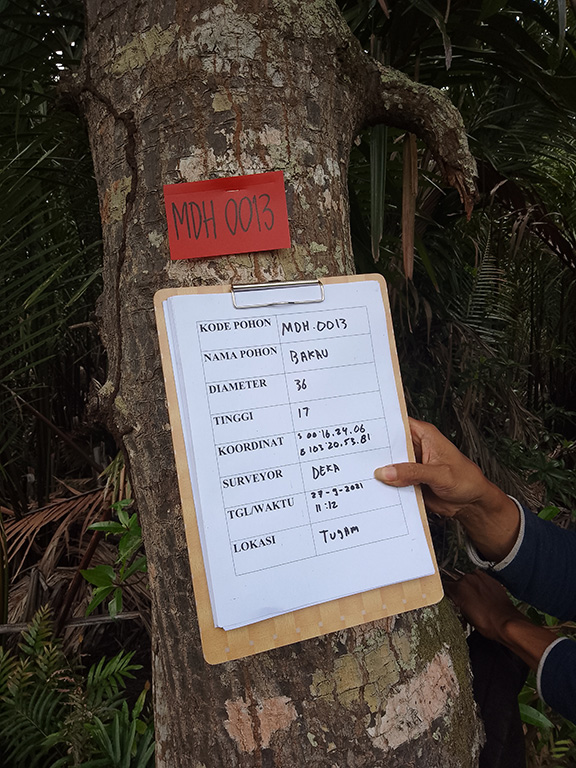 MDH 0013
KODE POHON MDH.0013
NAMA POHON BAKAU
DIAMETER 36
TINGGI 17
KOORDINAT S 00°16.24.06
E 103°20.53.81
SURVEYOR DEKA
TGL/WAKTU 27-9-2021
11:12
LOKASI TUGAM